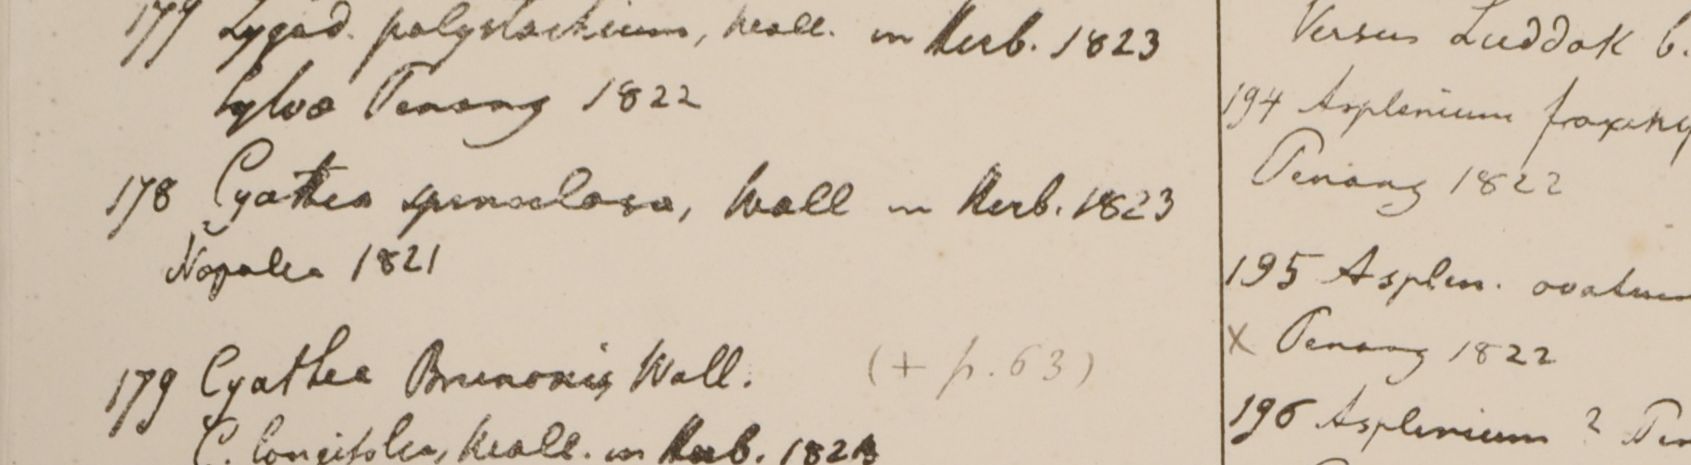 177 Lygod. polystachium, Wall. in Herb. 1823
Sylvæ Penang 1822
178 Cyathea spinulosa, Wall in Herb. 1823
Napalia 1821
179 Cyathea Brunonis, Wall. (+ p. 63)
C. longifolia, Wall. in Herb. 182
Versus Luddok 6.
194 Asplenium
Penang 1822
195 Asplen. ovatum
X Penang 1822
196 Asplenium ? Pen